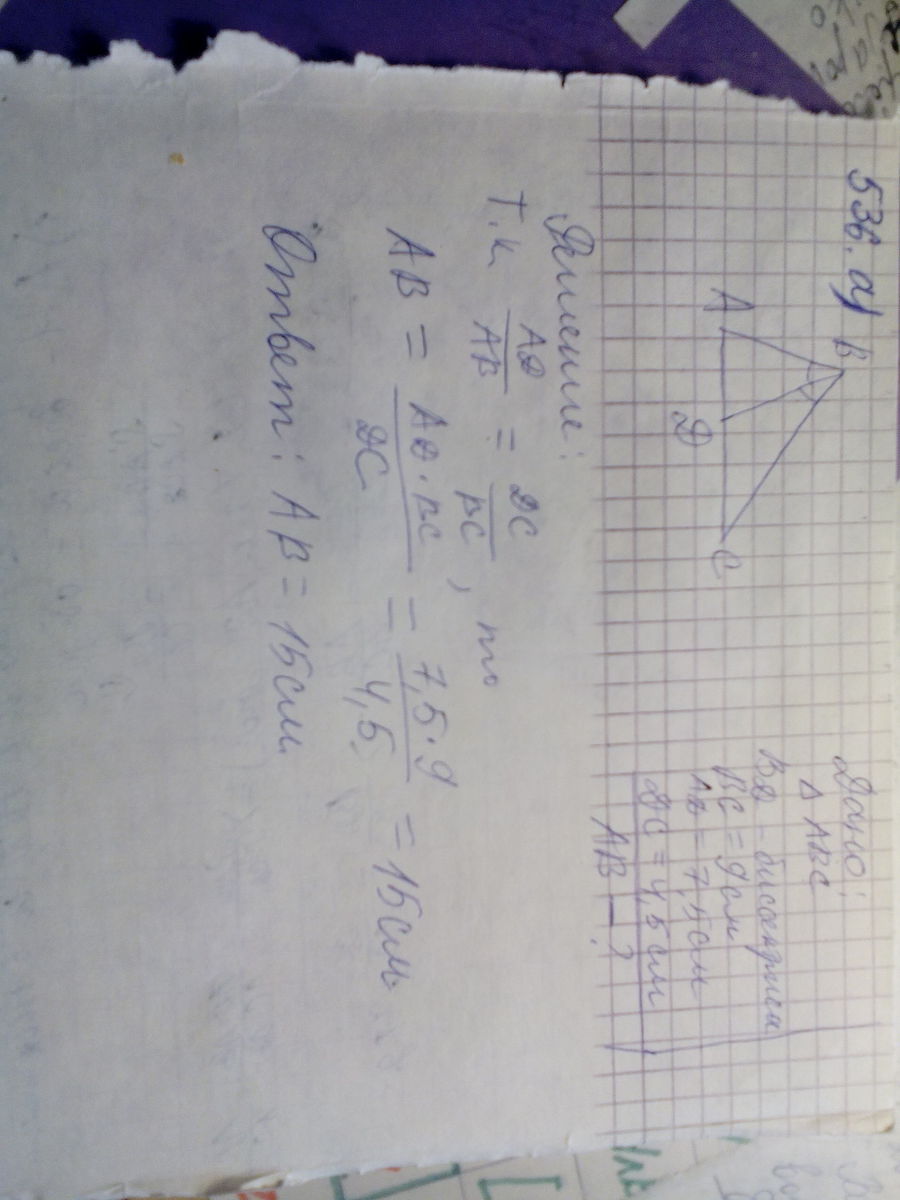 536. а)
B
A
D
C
Дано:
Δ ABC
BD - биссектриса
BC = 9см
AD = 7,5см
DC = 4,5см
AB - ?
Решение:
Т.к AD/AB = DC/BC, то
AB = AD·BC/DC = 7,5·9/4,5 = 15см
Ответ: AB = 15см